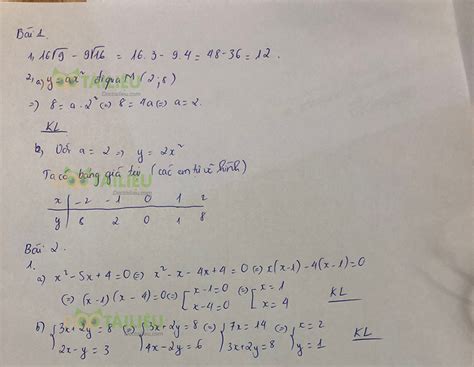 Bài 1.
1, 16√9 - 9√16 = 16.3 - 9.4 = 48 - 36 = 12.
2, a) y = ax² đi qua M (2; 8)
=> 8 = a.2² (=) 8 = 4a (=) a = 2.
KL
b) Với a = 2 => y = 2x²
Ta có bảng giá trị (các em tự vẽ hình)
x | -2 -1 0 1 2
y | 8 2 0 1 8
Bài 2.
1.
a) x² - 5x + 4 = 0 (=) x² - x - 4x + 4 = 0 (=) x(x-1) - 4(x-1) = 0
(=) (x-1)(x-4) = 0 (=) [x-1=0 (=) [x=1 KL
x-4=0 x=4
b) {3x+2y=8 (=) {3x+2y=8 (=) {7x=14 (=) {x=2 KL
2x-y=3 4x-2y=6 3x+2y=8 y=1
TAILIEU
TAILIEU
TAILIEU